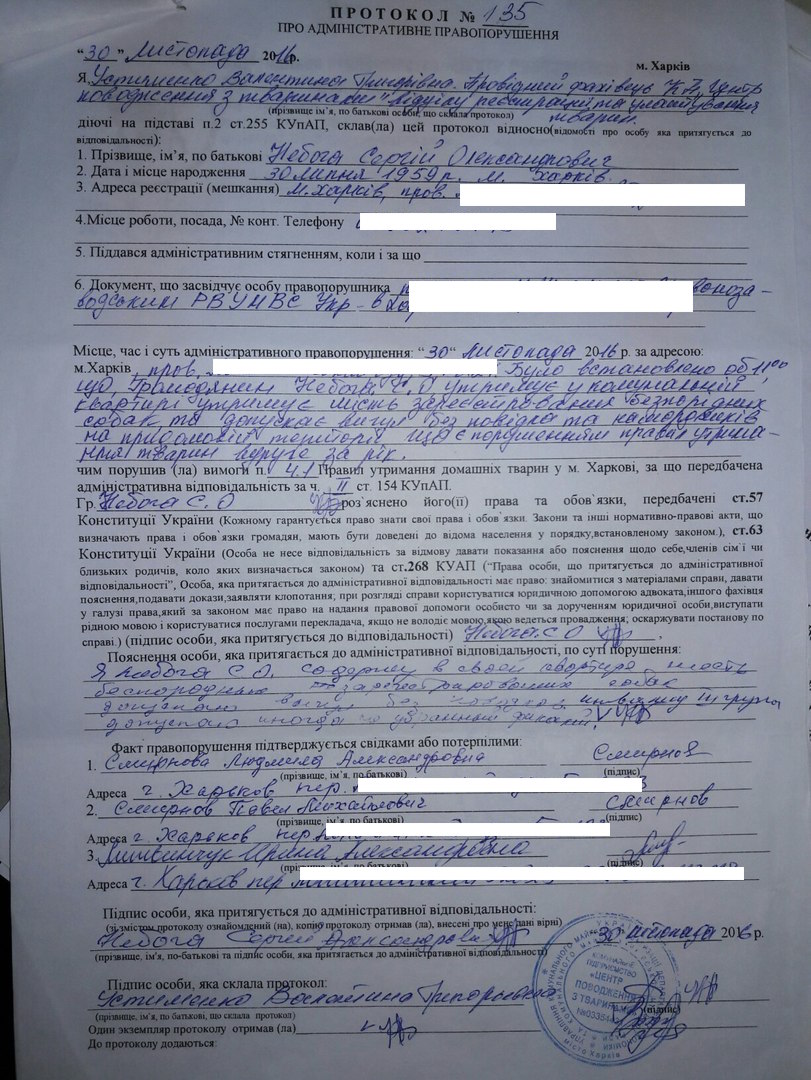 ПРОТОКОЛ № 135
ПРО АДМІНІСТРАТИВНЕ ПРАВОПОРУШЕННЯ
“30” Листопада 2016р.
м. Харків
Я, Устименко Валентина Григорівна. Провідний фахівець КП „Центр
поводження з тваринами" відділу реєстрації та
тварин.
(прізвище ім’я, по батькові особи, що склала протокол)
діючі на підставі п.2 ст.255 КУпАП, склав(ла) цей протокол відносно(відомості про особу яка притягується до
відповідальності):
1. Прізвище, ім’я, по батькові Небога Сергій Олександрович
2. Дата і місце народження 30 липня 1959 р. м. Харків.
3. Адреса реєстрації (мешкання) м.Харків, пров.
4.Місце роботи, посада, № конт. Телефону
5. Піддався адміністративним стягненням, коли і за що
6. Документ, що засвідчує особу правопорушника
водським РВ УМВС Укр. в
Місце, час і суть адміністративного правопорушення: “30“ Листопада 2016 р. за адресою:
м.Харків, пров. Було встановлено об 11,00
що громадянин Небога С. О утримує у комунальній
квартирі утримує шість зареєстрованих безпорідних
собак та допускає вигул без повідка та намордників
на придомовій території що є порушенням правил утрима-
ння тварин вдруге за рік.
чим порушив (ла) вимоги п. 4.1 Правил утримання домашніх тварин у м. Харкові, за що передбачена
адміністративна відповідальність за ч. II ст. 154 КУпАП.
Гр. Небога С. О роз`яснено його(її) права та обов`язки, передбачені ст.57
Конституції України (Кожному гарантується право знати свої права і обов`язки. Закони та інші нормативно-правові акти, що
визначають права і обов`язки громадян, мають бути доведені до відома населення у порядку,встановленому законом.), ст.63
Конституції України (Особа не несе відповідальність за відмову давати показання або пояснення щодо себе,членів сім`ї чи
близьких родичів, коло яких визначається законом) та ст.268 КУАП (“Права особи, що притягується до адміністративної
відповідальності”, Особа, яка притягається до адміністративної відповідальності має право: знайомитися з матеріалами справи, давати
пояснення,подавати докази,заявляти клопотання; при розгляді справи користуватися юридичною допомогою адвоката,іншого фахівця
у галузі права,який за законом має право на надання правової допомоги особисто чи за дорученням юридичної особи,виступати
рідною мовою і користуватися послугами перекладача, якщо не володіє мовою,якою ведеться провадження; оскаржувати постанову по
справі.) (підпис особи, яка притягується до відповідальності) Небога.С О ,
Пояснення особи, яка притягається до адміністративної відповідальності, по суті порушення:
Я Небога С. О. содержу в своей квартире шесть
беспородных зарегистрированных собак
допускаю выгул без инвалид III группа
допускаю иногда
Факт правопорушення підтверджується свідками або потерпілими:
1. Смирнова Людмила Александровна Смирнов
(прізвище, ім`я, по батькові) (підпис)
Адреса г. Харьков пер.
2. Смирнов Павел Михайлович Смирнов
(прізвище, ім`я, по батькові) (підпис)
Адреса г. Харьков пер
3. Ирина Александровна
(підпис)
Адреса г. Харьков пер
Підпис особи, яка притягається до адміністративної відповідальності:
(зі змістом протоколу ознайомлений (на), копію протоколу отримав (ла), внесені про мене дані вірні)
Небога Сергей Александрович 30 листопада 2016р.
(прізвище, ім`я, по-батькові та підпис особи, яка притягається до адміністративної відповідальності)
Підпис особи, яка склала протокол:
Устименко Валентина Григорьевна
(прізвище, ім`я, по батькові, що склала протокол) (підпис)
Один экземпляр протоколу отримав (ла)
До протоколу додаються:
ПІДПРИЄМСТВО
«ЦЕНТР
ПОВОДЖЕННЯ
З ТВАРИНАМИ»
місто Харків